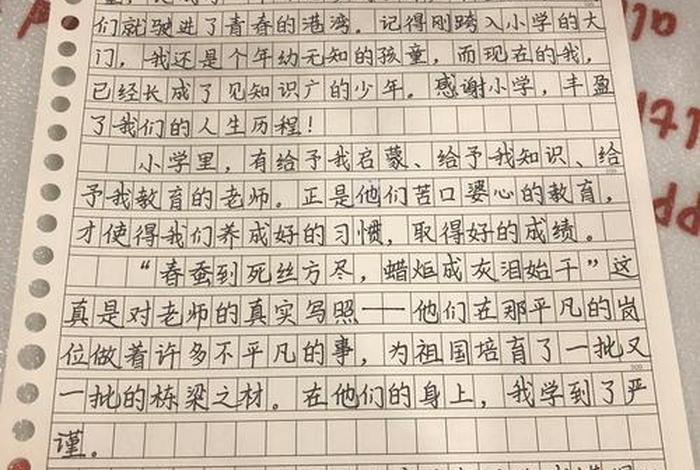 们就驶进了青春的港湾。记得刚跨入小学的大
门,我还是个年幼无知的孩童,而现在的我,
已经长成了见知识广的少年。感谢小学,丰盈
了我们的人生历程!
小学里,有给予我启蒙、给予我知识、给
予我教育的老师。正是他们苦口婆心的教育,
才使得我们养成好的习惯,取得好的成绩。
“春蚕到死丝方尽,蜡炬成灰泪始干”这
真是对老师的真实写照——他们在那平凡的岗
位做着许多不平凡的事,为祖国培育了一批又
一批的栋梁之材。在他们的身上,我学到了严
谨。